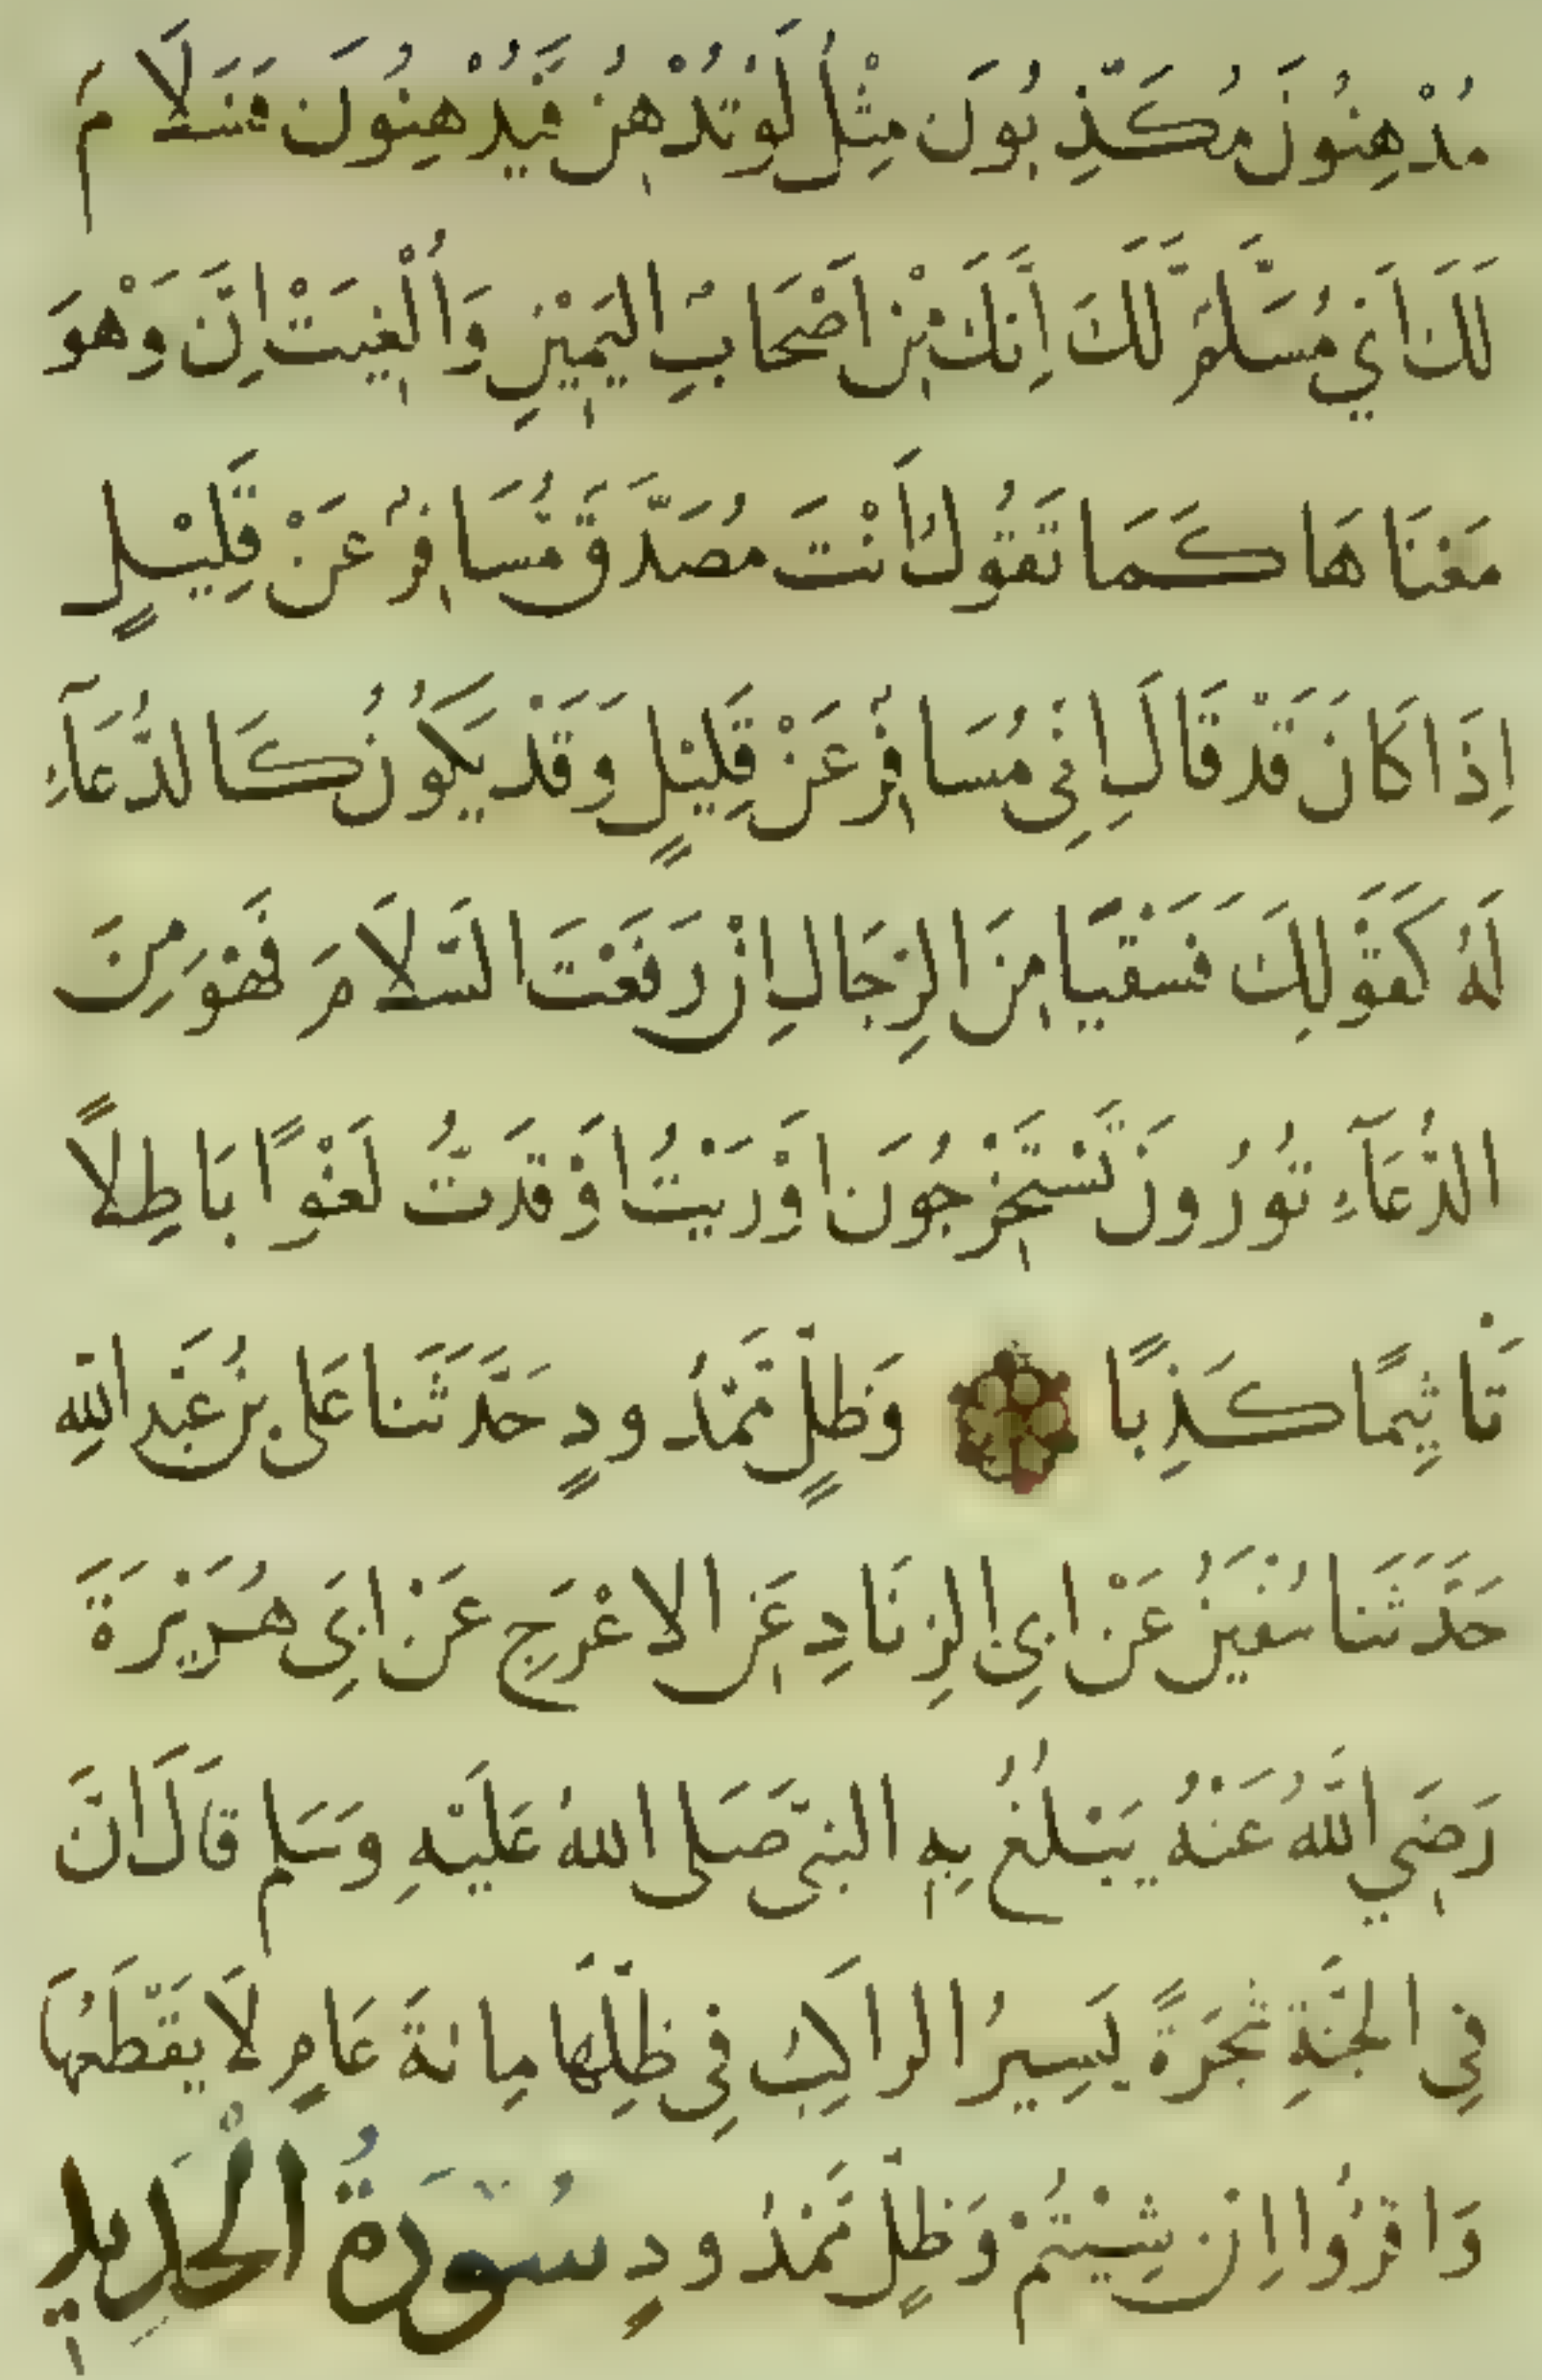 مُدْهِنُونَ مُكَذِّبُونَ مِثْلُ لَوْ تُدْهِنُ فَيُدْهِنُونَ فَسَلَامٌ
لَكَ اَيْ مُسَلَّمٌ لَكَ اِنَّكَ مِنْ اَصْحَابِ الْيَمِيْنِ وَاُلْغِيَتْ اِنَّ وَهْوَ
مَعْنَاهَا كَمَا تَقُولُ اَنْتَ مُصَدَّقٌ مُسَافِرٌ عَنْ قَلِيْلٍ
اِذَا كَانَ قَدْ قَالَ اِنِّي مُسَافِرٌ عَنْ قَلِيْلٍ وَقَدْ يَكُونُ كَالدُّعَآءِ
لَهُ كَقَوْلِكَ فَسَقْيًا مِنَ الرِّجَالِ اِنْ رَفَعْتَ السَّلَامَ فَهْوَ مِنَ
الدُّعَآءِ تُورُونَ تَسْتَخْرِجُونَ اَوْرَيْتُ اَوْقَدْتُ لَغْوًا بَاطِلًا
تَاْثِيمًا كَذِبًا وَظِلٍّ مَمْدُودٍ حَدَّثَنَا عَلِى بْنُ عَبْدِ اللهِ
حَدَّثَنَا سُفْيٰنُ عَنْ اَبِى الزِّنَادِ عَنِ الاَعْرَجِ عَنْ اَبِى هُرَيْرَةَ
رَضِيَ اللهُ عَنْهُ يَبْلُغُ بِهِ النَّبِىَّ صَلَى اللهُ عَلَيْهِ وَسَلم قَالَ اِنَّ
فِي الْجَنَّةِ شَجَرَةً يَسِيرُ الرَّاكِبُ فِي ظِلِّهَا مِائَةَ عَامٍ لَا يَقْطَعُهَا
وَاقْرَؤُا اِنْ شِئْتُمْ وَظِلٍّ مَمْدُودٍ سُورَةُ الْحَدِيدِ